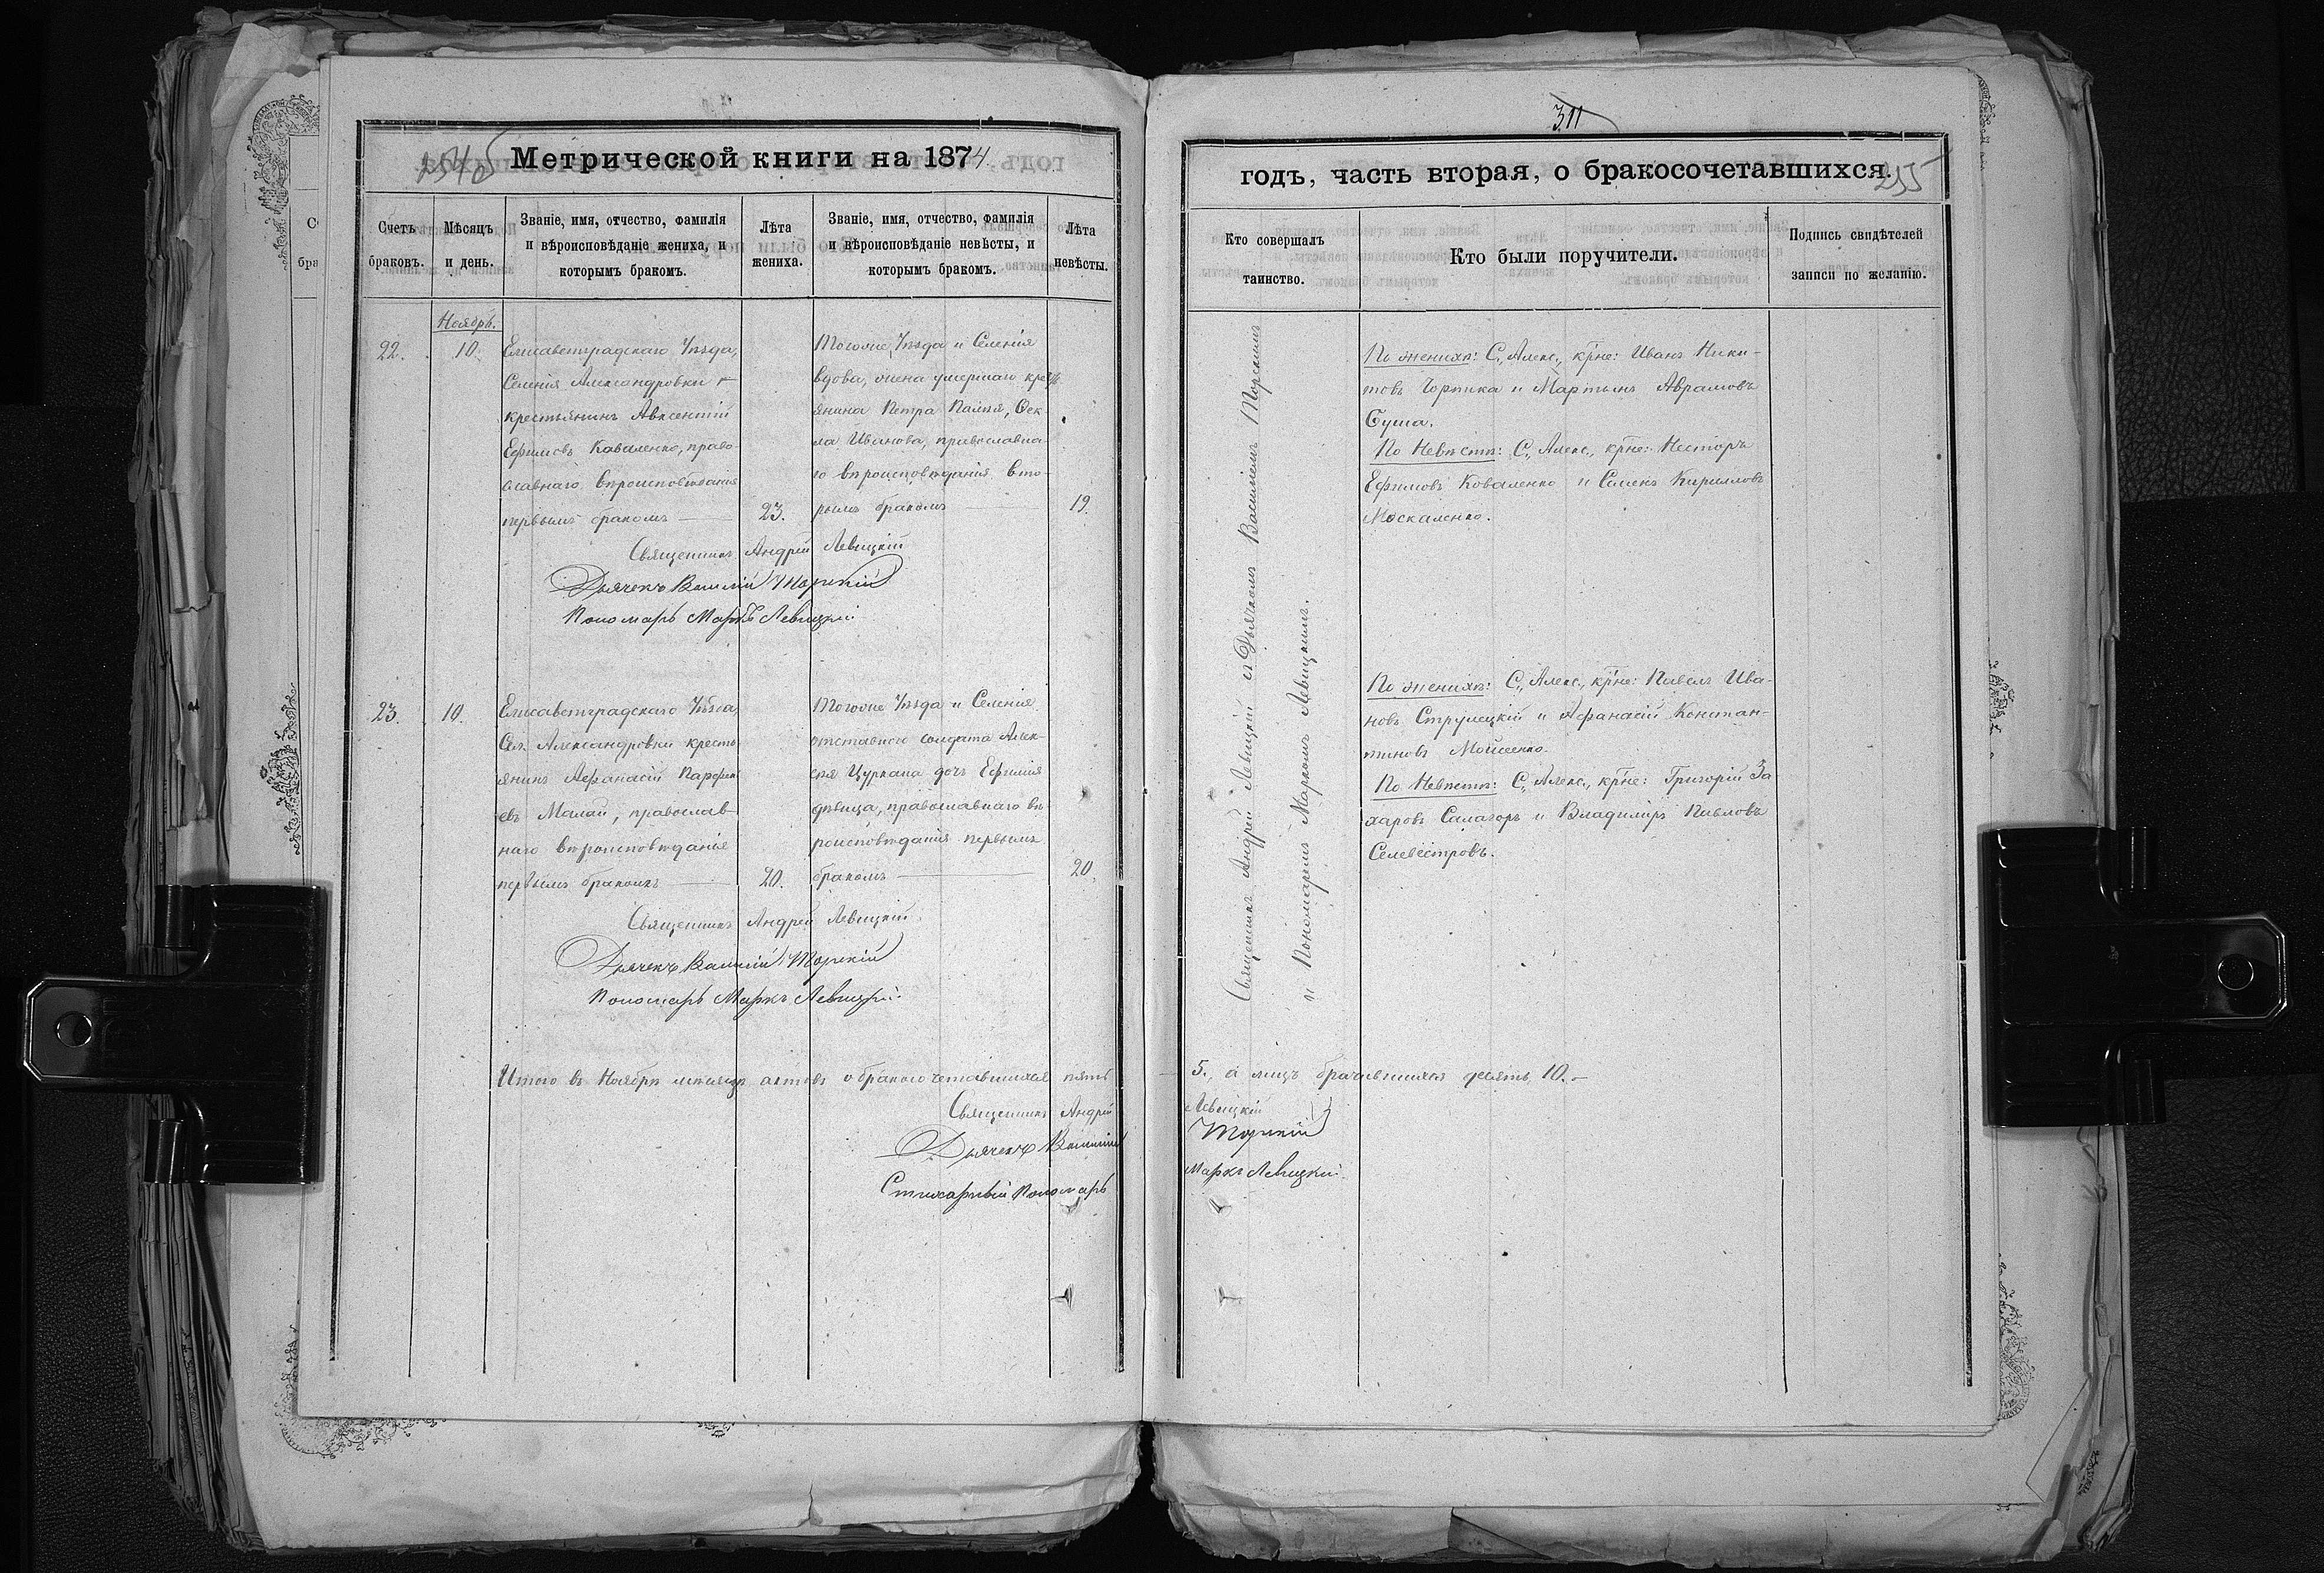 311
Метрической книги на 1874
годъ, часть вторая, о бракосочетавшихся.
255
Счетъ браковъ.
Мѣсяцъ и день.
Званіе, имя, отчество, фамилія
и вѣроисповѣданіе жениха, и
которымъ бракомъ.
Лѣта жениха.
Званіе, имя, отчество, фамилія
и вѣроисповѣданіе невѣсты, и
которымъ бракомъ.
Лѣта невѣсты.
Кто совершалъ
таинство.
Кто были поручители.
Подпись свидѣтелей
записи по желанію.
Ноябрь.
22.
10.
Елисаветградскаго Уѣзда,
Селенія Александровки
крестьянинъ Авксентій
Ефимовъ Коваленко, право-
славнаго вѣроисповѣданія
первымъ бракомъ
23.
Тогоже Уѣзда и Селенія
вдова, жена умершаго кресть
янина Петра Палія, Ѳек-
ла Иванова, православна-
го вѣроисповѣданія вто-
рымъ бракомъ
19.
Священникъ Андрей Левицкій
Дьячекъ Василій Торскій
Пономарь Маркъ Левицкій
23.
10.
Елисаветградскаго Уѣзда,
Сел. Александровки кресть
янинъ Афанасій Парфені
евъ Малай, православ-
наго вѣроисповѣданія
первымъ бракомъ
20.
Тогоже Уѣзда и Селенія
отставного солдата Алек-
сѣя Цуркана дочь Ефимія
дѣвица, православнаго вѣ-
роисповѣданія первымъ
бракомъ
20.
Священникъ Андрей Левицкій
Дьячекъ Василій Торскій
Пономарь Маркъ Левицкій
Итого въ Ноябрѣ мѣсяцѣ актовъ о бракосочетавшихся пять
Священникъ Андрей
Дьячекъ Василій
Стихарный Пономарь
Священникъ Андрей Левицкій съ Дьячкомъ Василіемъ Торскимъ
и Пономаремъ Маркомъ Левицкимъ.
По женихѣ: С. Алекс., кр̃не: Иванъ Ники-
товъ Чортика и Мартынъ Аврамовъ
Суша.
По Невѣстѣ: С. Алекс., кр̃не: Несторъ
Ефимовъ Коваленко и Семенъ Кирилловъ
Москаленко.
По женихѣ: С. Алекс., кр̃не: Павелъ Ива-
новъ Струмецкій и Афанасій Констан-
тиновъ Мойсеенко.
По Невѣстѣ: С. Алекс., кр̃не: Григорій За
харовъ Салагоръ и Владиміръ Павловъ
Селевестровъ.
5., а лицъ брачившихся десять 10.
Левицкій
Торскій
Маркъ Левицкій